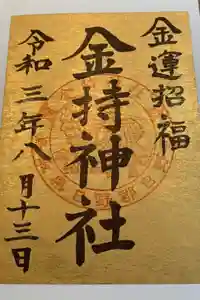 金運招福
金持神社
令和三年八月十三日